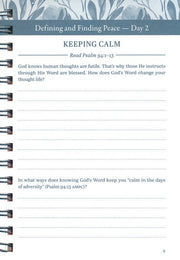 Defining and Finding Peace — Day 2
KEEPING CALM
Read Psalm 94:1–15
God knows human thoughts are futile. That's why those He instructs
through His Word are blessed. How does God's Word change your
thought life?
In what ways does knowing God's Word keep you "calm in the days
of adversity" (Psalm 94:13 AMPC)?